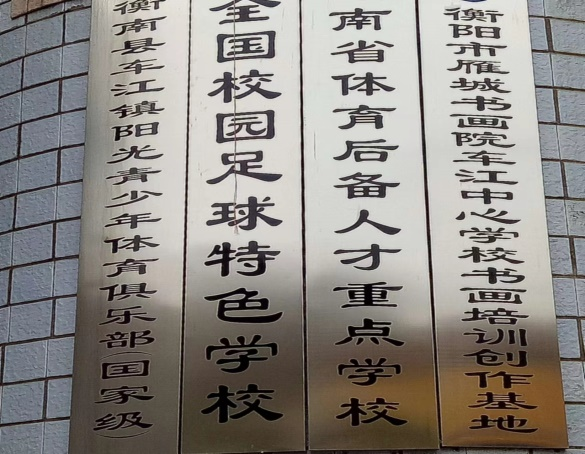 衡南县车江镇阳光青少年体育俱乐部(国家级)
全国校园足球特色学校
南省体育后备人才重点学校
衡阳市雁城书画院车江中心学校书画培训创作基地